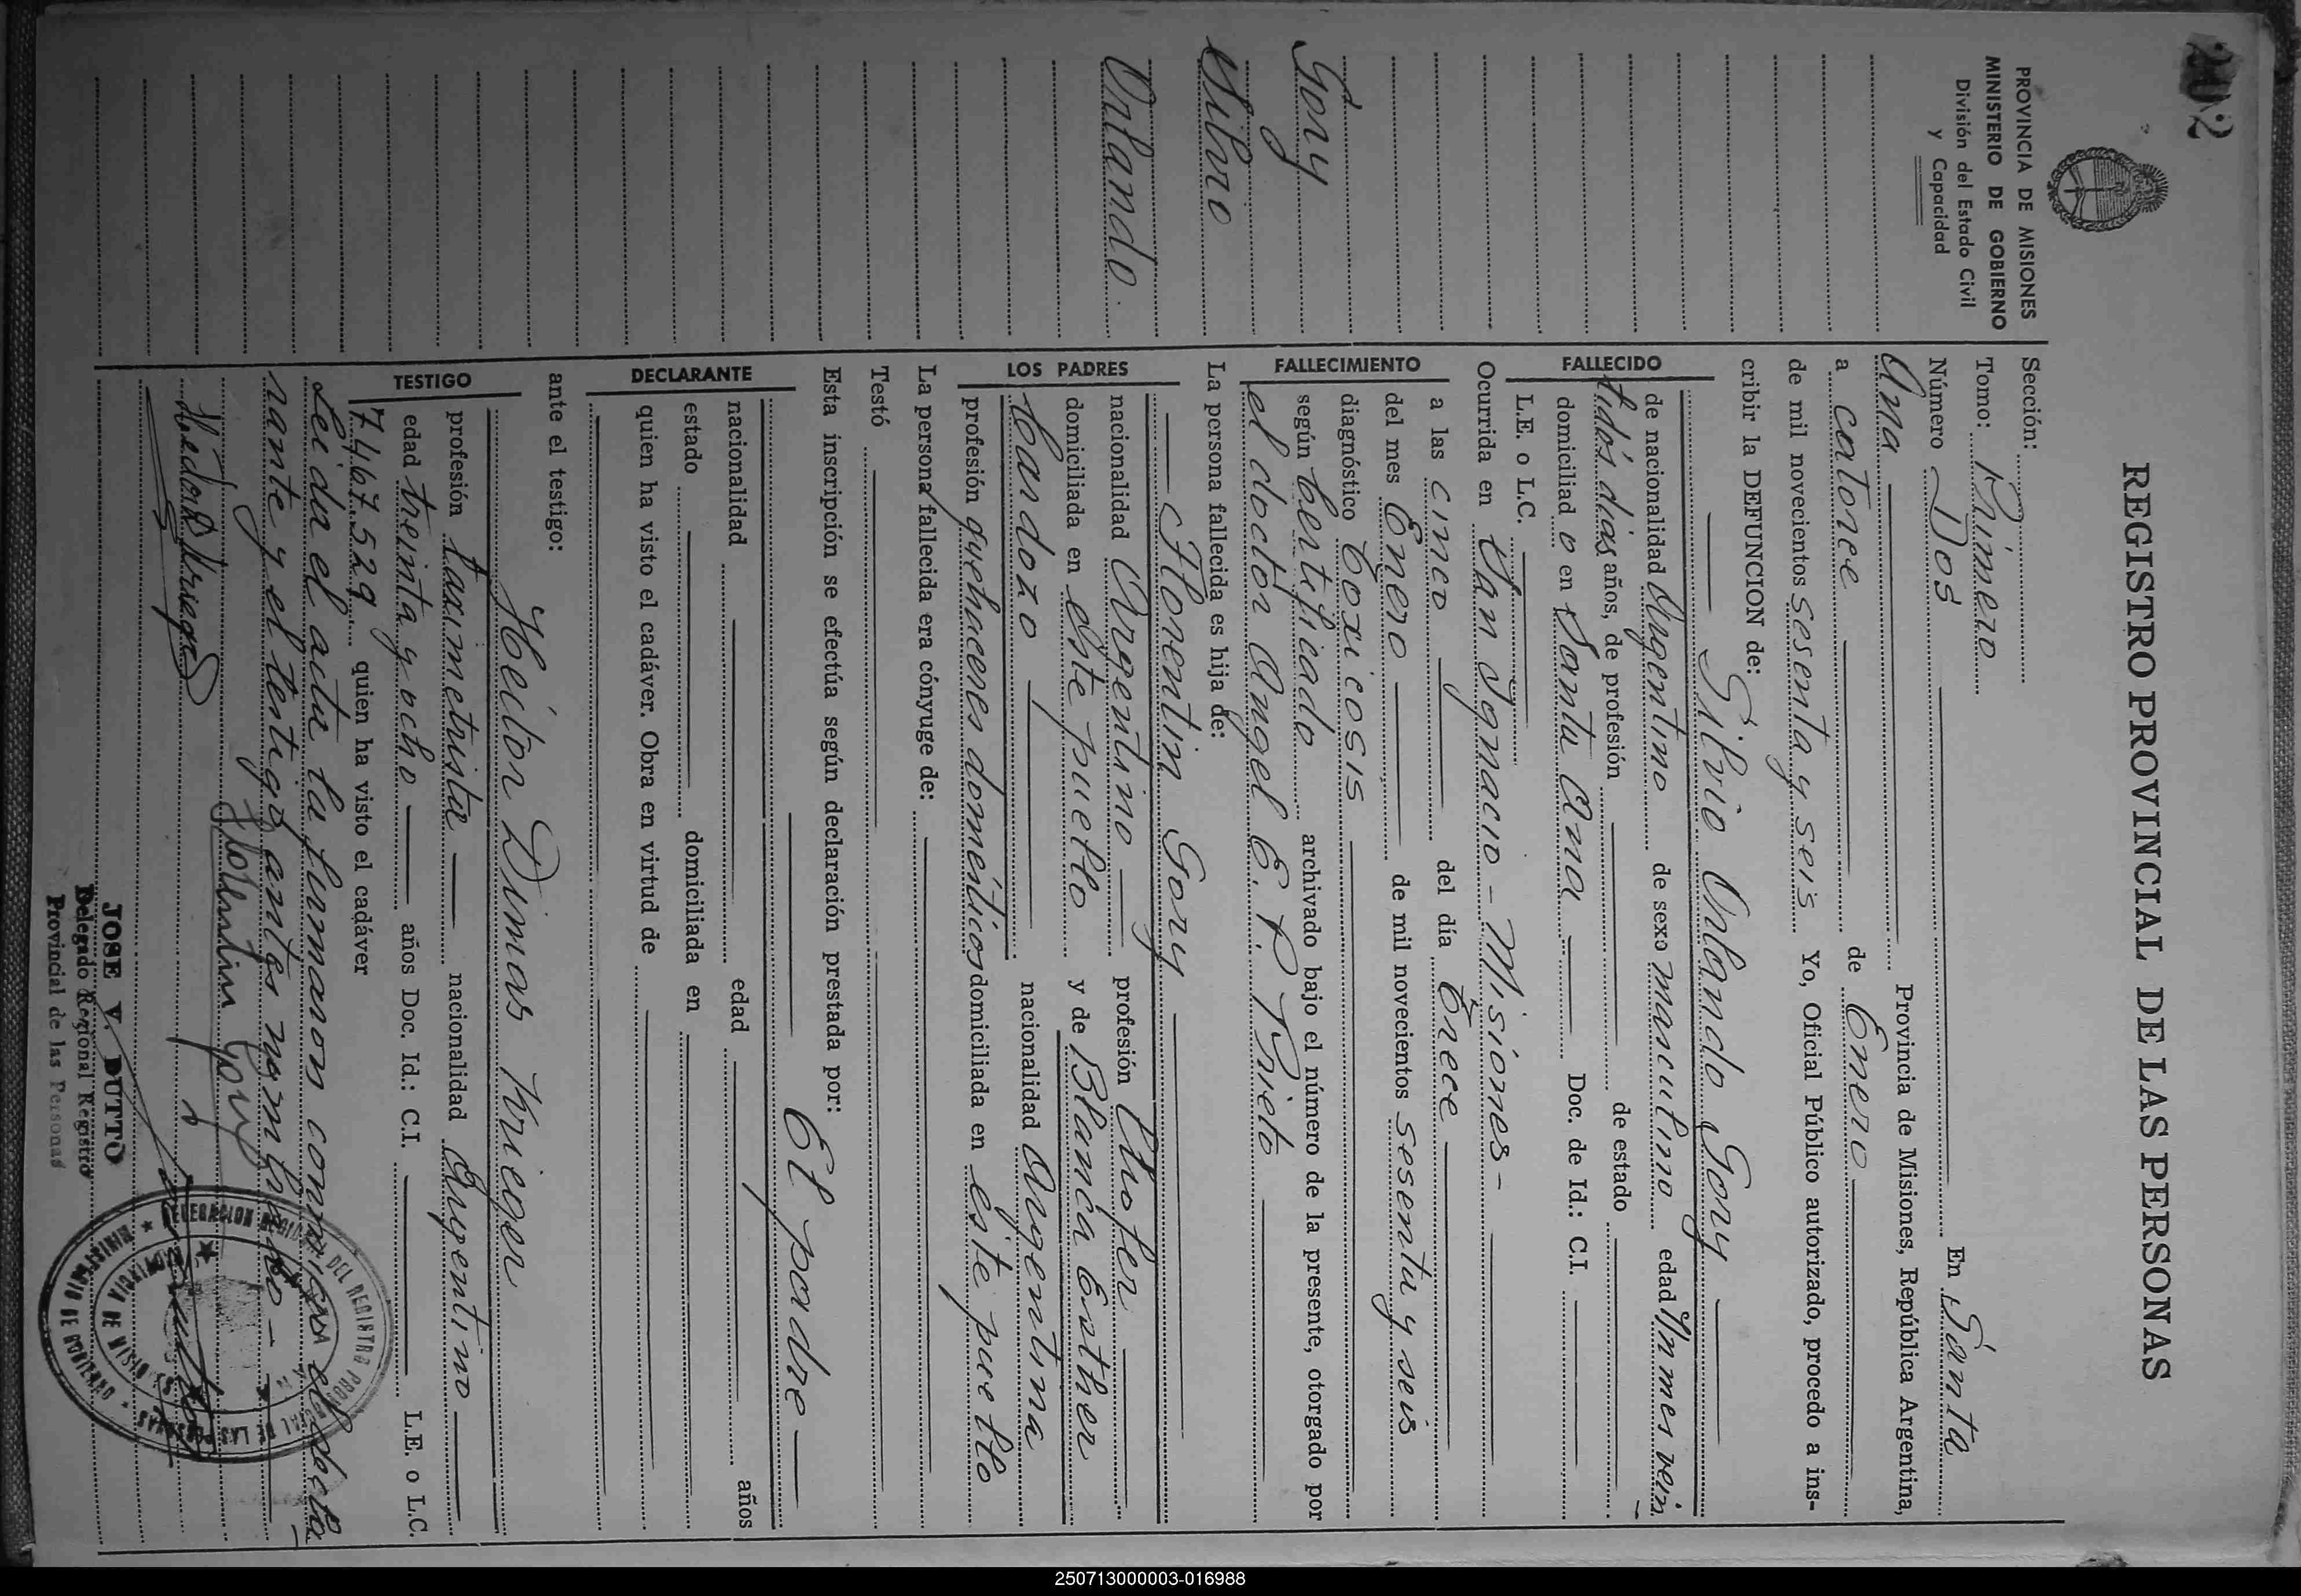 202
REGISTRO PROVINCIAL DE LAS PERSONAS
PROVINCIA DE MISIONES
MINISTERIO DE GOBIERNO
División del Estado Civil
y Capacidad
Gory
Silvio
Orlando
Sección:
Tomo: Primero
Número Dos En Santa
Ana Provincia de Misiones, República Argentina,
a catorce de Enero
de mil novecientos sesenta y seis Yo, Oficial Público autorizado, procedo a ins-
cribir la DEFUNCION de:
Silvio Orlando Gory
FALLECIDO
de nacionalidad Argentino de sexo masculino edad Un mes vein
tidós dias años, de profesión de estado
domiciliado en Santa Ana Doc. de Id.: C.I.
L.E. o L.C.
Ocurrida en San Ignacio - Misiones -
FALLECIMIENTO
a las cinco del día Trece
del mes Enero de mil novecientos sesenta y seis
diagnóstico Toxicosis
según Certificado archivado bajo el número de la presente, otorgado por
el doctor Angel E. P. Prieto
La persona fallecida es hija de:
Florentin Gory
LOS PADRES
nacionalidad Argentino profesión Chofer
domiciliada en éste pueblo y de Blanca Esther
Cardozo nacionalidad Argentina
profesión quehaceres domésticos domiciliada en éste pueblo
La persona fallecida era cónyuge de:
Testó
Esta inscripción se efectúa según declaración prestada por:
El padre
DECLARANTE
nacionalidad edad años
estado domiciliada en
quien ha visto el cadáver. Obra en virtud de
ante el testigo:
Héctor Dimas Krieger
TESTIGO
profesión taximetrista nacionalidad Argentino
edad treinta y ocho años Doc. Id.: C.I. L.E. o L.C.
7.467.529 quien ha visto el cadáver
Leida el acta la firmaron conmigo el decla
rante y el testigo antes nombrado -
Florentin Gory
JOSE V. DUTTO
Delegado Regional Registro
Provincial de las Personas
DELEGACION REGIONAL DEL REGISTRO PROVINCIAL DE LAS PERSONAS
MINISTERIO DE GOBIERNO
PROVINCIA DE MISIONES
250713000003-016988